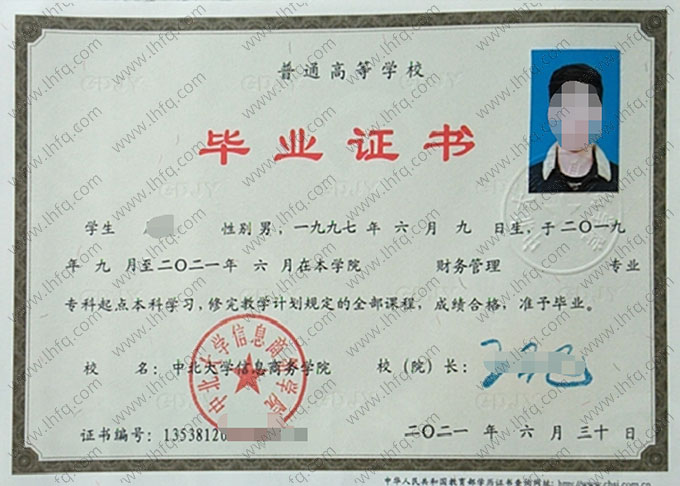 普通高等学校
毕业证书
学生 性别男，一九九七年 六月 九日生，于二〇一九
年 九 月至二〇二一年 六 月在本学院 财务管理 专业
专科起点本科学习，修完教学计划规定的全部课程，成绩合格，准予毕业。
校 名：中北大学信息商务学院 校（院）长：
中北大学信息商务学院
证书编号：1353812 二〇二一 年 六 月 三十 日
中华人民共和国教育部学历证书查询网址：http://www.chsi.com.cn
www.lhfq.com